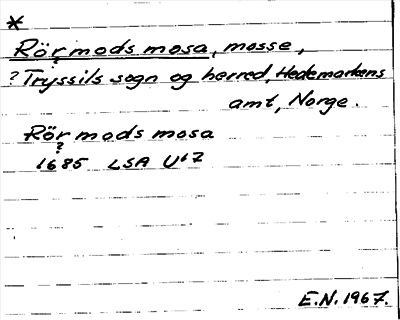 *
Rör?mods mosa, mosse,
? Tryssils sogn og herred, Hedemarkens
amt, Norge.
Rör?mods mosa
1685 LSA U17
E.N. 1967.